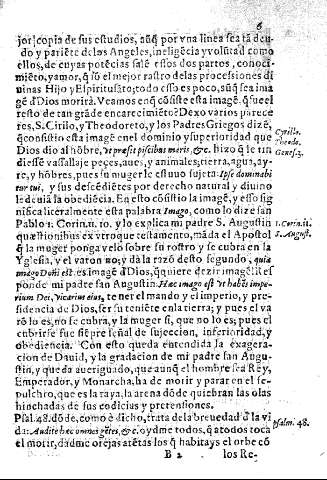 6
jor! copia de sus estudios, aũq̃ por vna linea sea tã deu-
do y pariẽte de los Angeles, ineligẽcia y volũtad como
ellos, de cuyas potẽcias salẽ estos dos partos, conoci-
miẽto, y amor, q̃ sõ el mejor rastro de las processiones di
uinas Hijo y Espiritusãto; todo esso es poco, aũq̃ sea ima
gẽ d'Dios morirà. Veamos enq̃ cõsiste esta imagẽ. q̃ fue el
resto de tan grãde encarecimiẽto? Dexo varios parece
res, S. Cirilo, y Theodoreto, y los Padres Griegos dizẽ,
q̃ consistio esta imagẽ en el dominio y superioridad que
Dios dio al hõbre, vt præsit piscibus maris, &c. hizo q̃ le rin
diesse vassallaje peçes, aues, y animales; tierra, agua, ay-
re, y hõbres, pues su muger le estuuo sujeta. Ipse dominabi
tur tui, y sus descẽdiẽtes por derecho natural y diuino
le deuiã la obediẽcia. En esto cõsistio la imagẽ, y esso sig
nifica literalmente esta palabra Imago, como lo dize san
Pablo 1. Corin. 11. 10. y lo explica mi padre S. Augustin
quæstionibus ex vtroque testamento, mãda el Apostol
q̃ la muger ponga velo sobre su rostro y se cubra en la
Yglesia, y el varon no; y dà la razõ desto segundo, quia
imago Domini est. es imagẽ d'Dios, q̃ quiere dezir imagẽ? Res
ponde mi padre san Augustin. Hac imago est vt habẽs impe-
rium Dei, vicarius eius, tener el mando y el imperio, y pre-
sidencia de Dios, ser su teniẽte en la tierra; y pues el va
rõ lo es, no se cubra, y la muger si, que no lo es; pues el
cubrirse fue siẽpre señal de sujeccion, inferioridad, y
obediencia. Con esto queda entendida la exagera-
cion de Dauid, y la gradacion de mi padre san Augu-
stin, y queda aueriguado, que aunq̃ el hombre sea Rey,
Emperador, y Monarcha, ha de morir y parar en el se-
pulchro, que es la raya, la arena dõde quiebran las olas
hinchadas de sus codicius y pretensiones.
Psal. 48. dõde, como è dicho, trata de la breuedad d'la vi
da: Audite hæc omnes gẽtes, &c. oydme todos, q̃ à todos toca
el morir, dadme orejas atẽtas los q̃ habitays el orbe cõ
B 2 los Re-
Cyrillo.
Theodo.
Genes. 2.
1. Corin. 11.
S. August.
Psalm. 48.